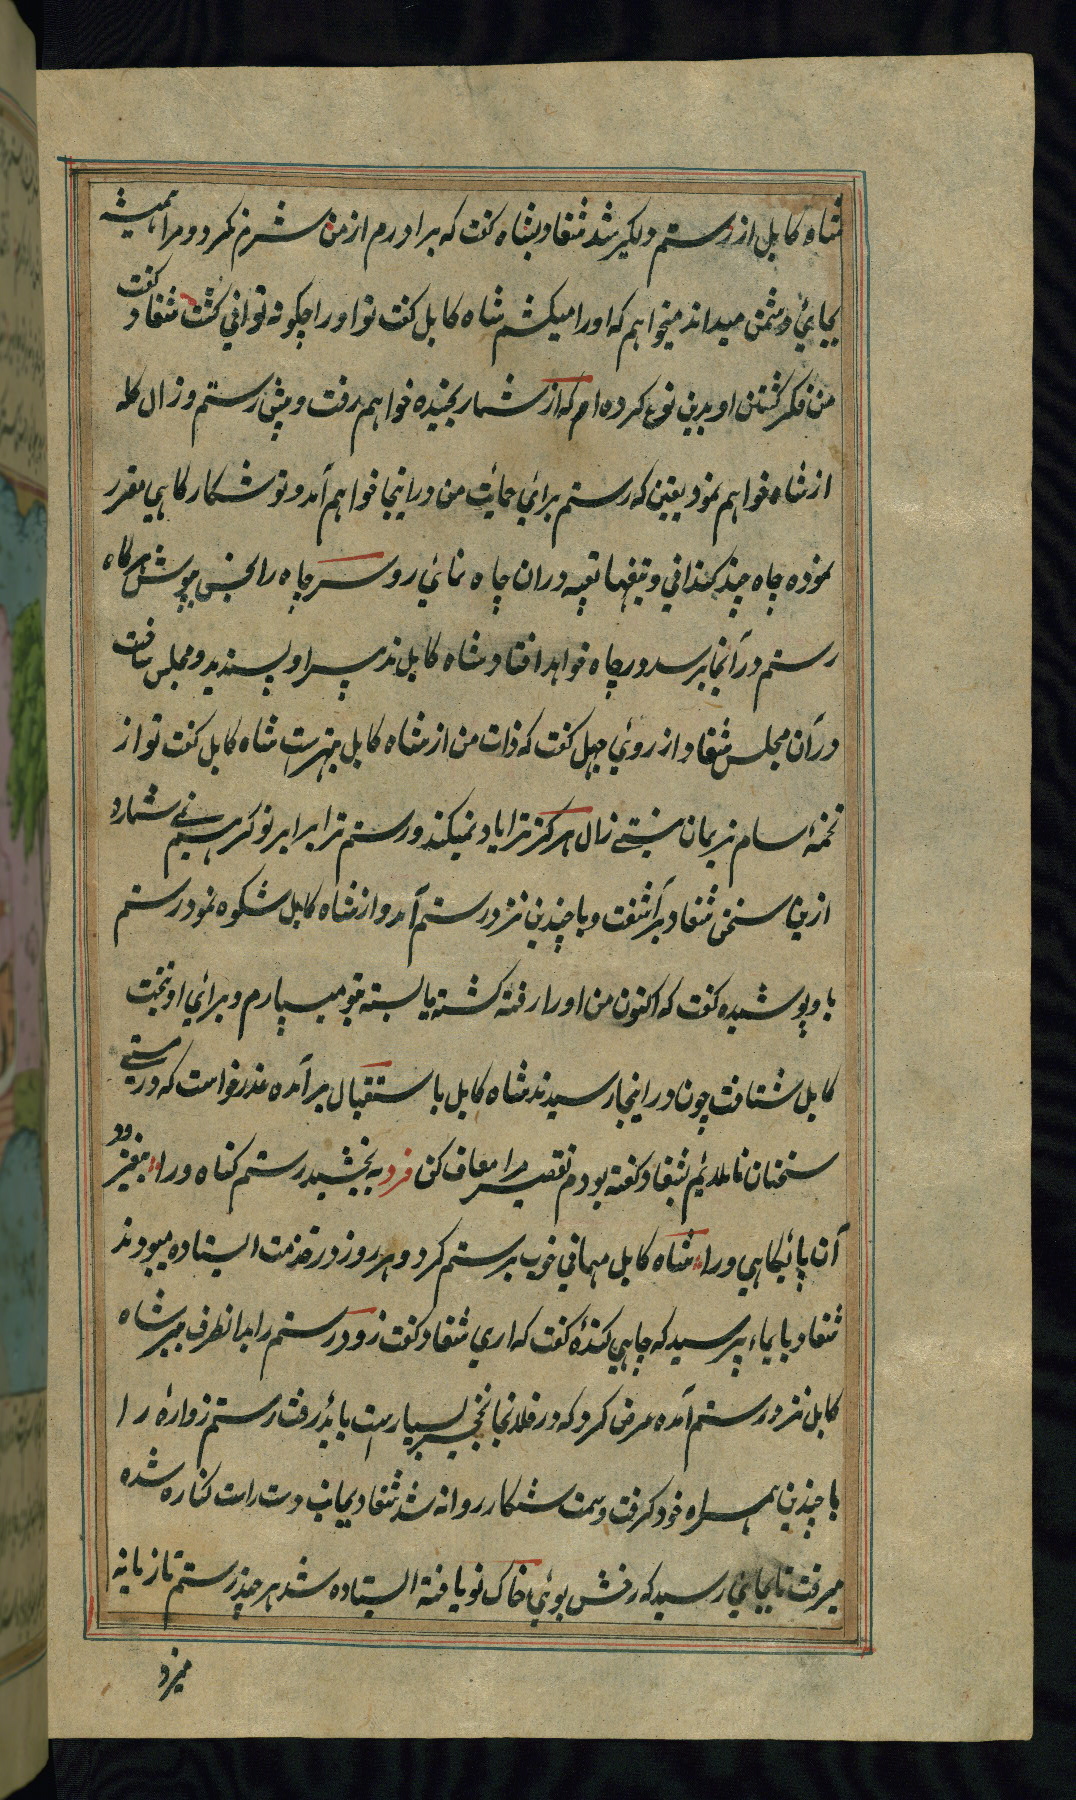 شاه کابل از رستم دلگیر شد شغاد بشاه کفت که برادرم از من شرم نکرد و مرا همیشه
بجایٔ دشمن میداند میخواهم که اورا میکشم شاه کابل کفت تو اورا چکونه توانی کشت شغاد کفت
من فکر کشتن او بدین نوع کرده ام که از شما رنجیده خواهم رفت و پیش رستم و زال کله
از شاه خواهم نمود یقین که رستم برایٔ حمایت من در اینجا خواهم آمد و تو شکار کاهی مقرر
نموده چاه چند کندانی و تیغها تعبیه دران چاه نمایٔ و سر چاه را بخس بپوش هرکاه
رستم در آنجا برسد در چاه خواهد افتاد شاه کابل تدبیر او پسندید و مجلس ساخت
در آن مجلس شغاد از رویٔ جهل کفت که ذات من از شاه کابل بهترست شاه کابل کفت تو از
تخمهٔ سام نریمان نیستی زال هرکز ترا یاد نمیکند و رستم ترا برابر نوکر هم نمی شمارد
ازین سخن شغاد برآشفت و با چندین نزد رستم آمد و از شاه کابل شکوه نمود رستم
با و پوشیده کفت که اکنون من اورا رفته کشته یا بسته بتو میسپارم و برایٔ او بتخت
کابل شتافت چون در اینجا رسیدند شاه کابل با ستقبال برآمده عذر خواست که در مستی
سخنان ناملایٔم بشغاد کفته بودم تقصیر مرا معاف کن فرد به بخشید رستم کناه ورا بیفزود
آن پایٔکاهی ورا شاه کابل مهمانی خوب برستم کرد و هر روز در خدمت ایستاده میبودند
شغاد بایماء پرسید که چاهی کندهٔ کفت که اری شغاد کفت زود رستم را بدانطرف ببر شاه
کابل نزد رستم آمده عرض کرد که در فلانجا نخچیر بسیارست باید رفت رستم زواره را
با چندین همراه خود کرفت و سمت شکار روانه شد شغاد بجانب دست راست کناره شده
میرفت تا بجایٔ رسید که رخش بویٔ خاک نو یافته ایستاده شد هر چند رستم تازیانه
میزد